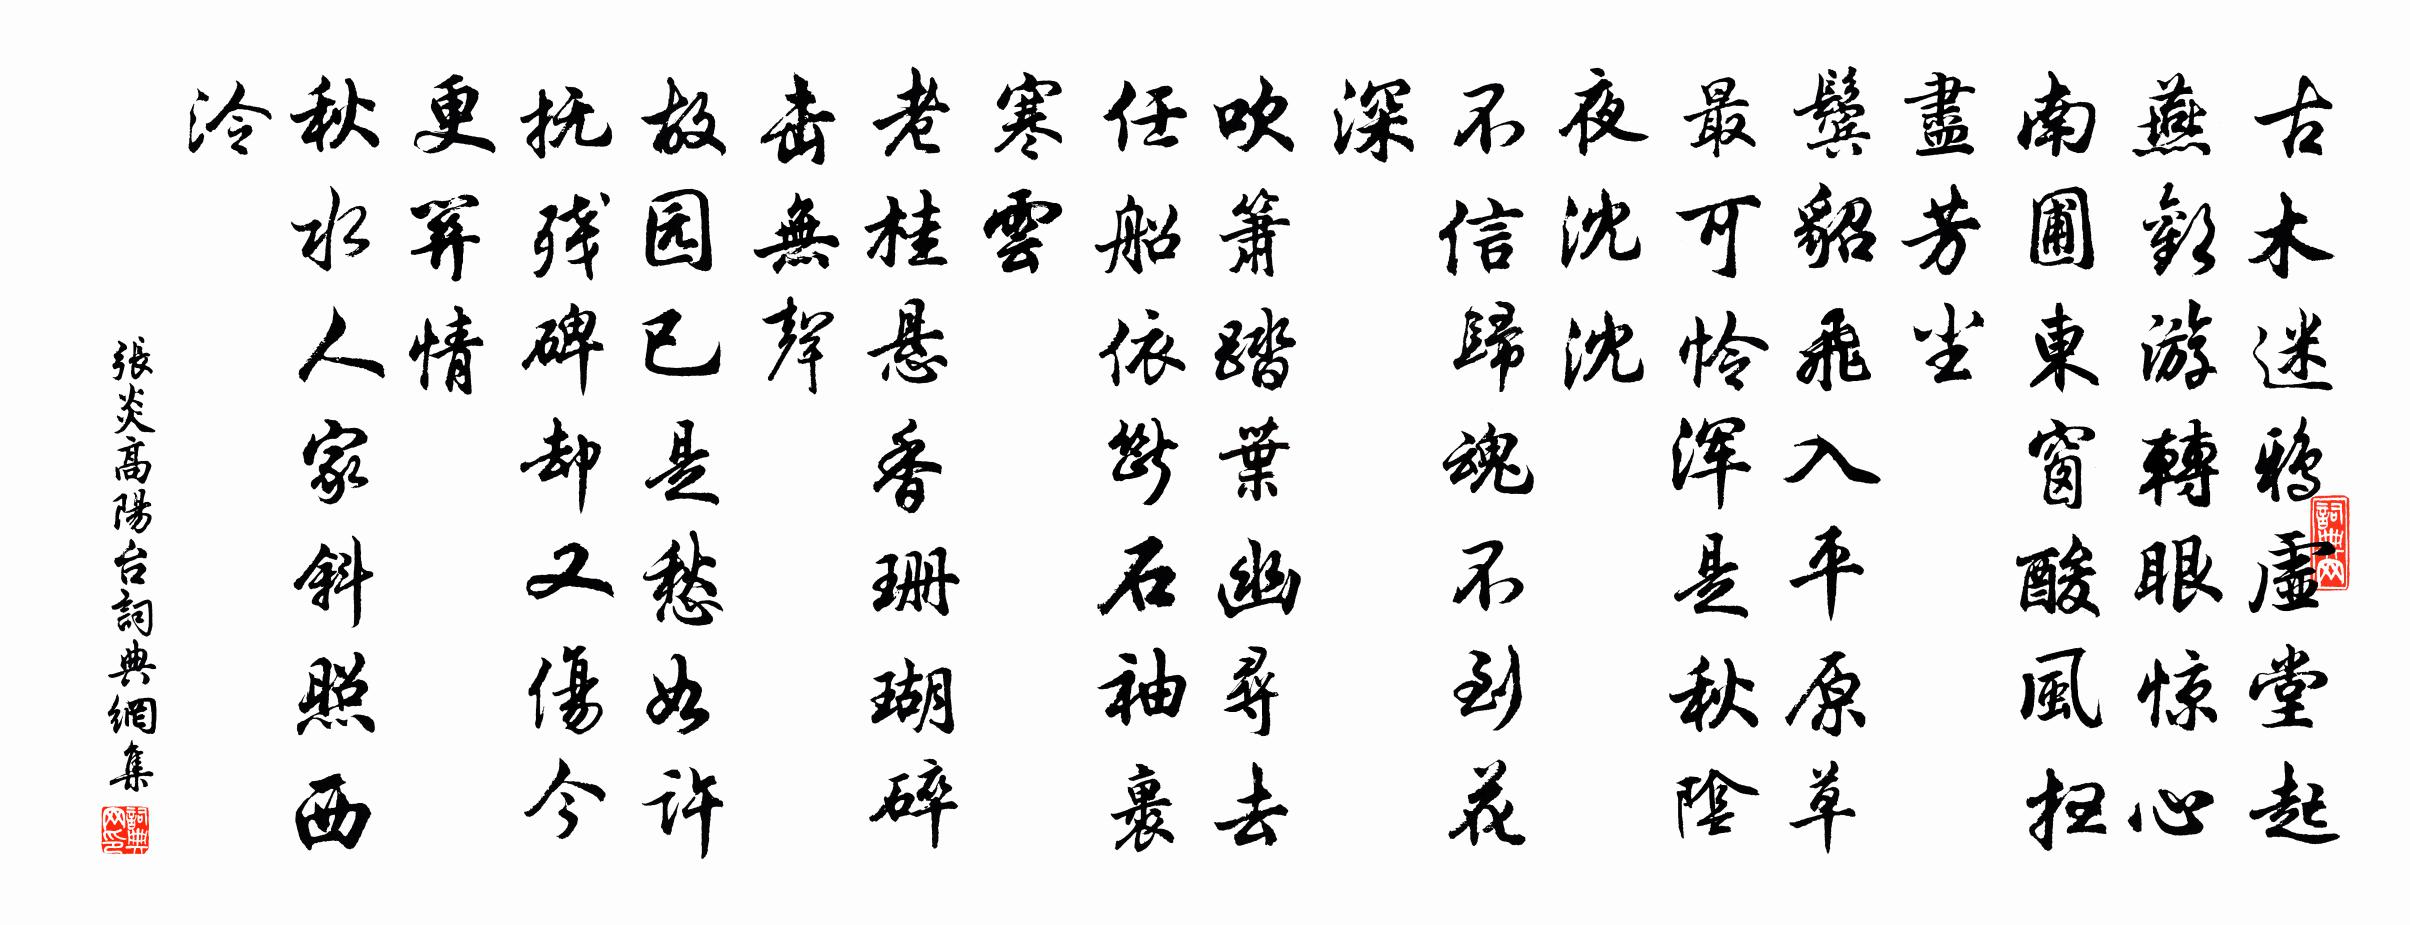 古木迷鴉虛堂起
燕歡游轉眼惊心
南圃東窗酸風扫
盡芳尘
鬢貂飛入平原草
最可怜浑是秋陰
夜沈沈
不信歸魂不到花
深
吹簫踏葉幽尋去
任船依斷石袖裹
寒雲
老桂悬香珊瑚碎
击無聲
故园已是愁如許
抚残碑却又傷今
更関情
秋水人家斜照西
泠
張炎高陽台詞典網集
詞典网
詞典网印